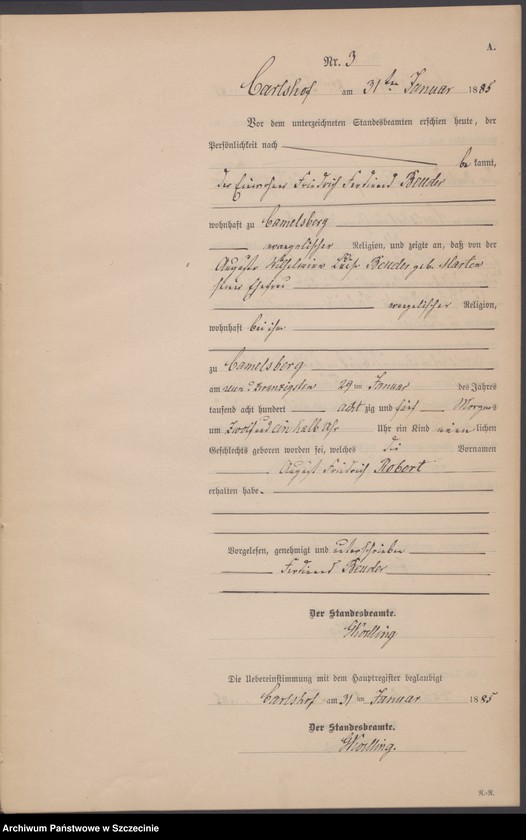 A.
Nr. 3
Carlshof am 31ten Januar 1885
Vor dem unterzeichneten Standesbeamten erschien heute, der
Persönlichkeit nach
be kannt,
der Einwohner Friedrich Ferdinand Bender
wohnhaft zu Camelsberg
evangelischer Religion, und zeigte an, daß von der
Auguste Wilhelmine Luise Bender geb. Marten
seiner Ehefrau
evangelischer Religion,
wohnhaft bei ihm
zu Camelsberg
am neun u. zwanzigsten 29 ten Januar des Jahres
tausend acht hundert acht zig und fünf Morgens
um zwölf und ein halb Uhr Uhr ein Kind männ lichen
Geschlechts geboren worden sei, welches die Vornamen
August Friedrich Robert
erhalten habe.
Vorgelesen, genehmigt und unterschrieben
Ferdinand Bender
Der Standesbeamte.
Die Uebereinstimmung mit dem Hauptregister beglaubigt
Carlshof am 31 ten Januar 1885
Der Standesbeamte.
R.-R.
Archiwum Państwowe w Szczecinie